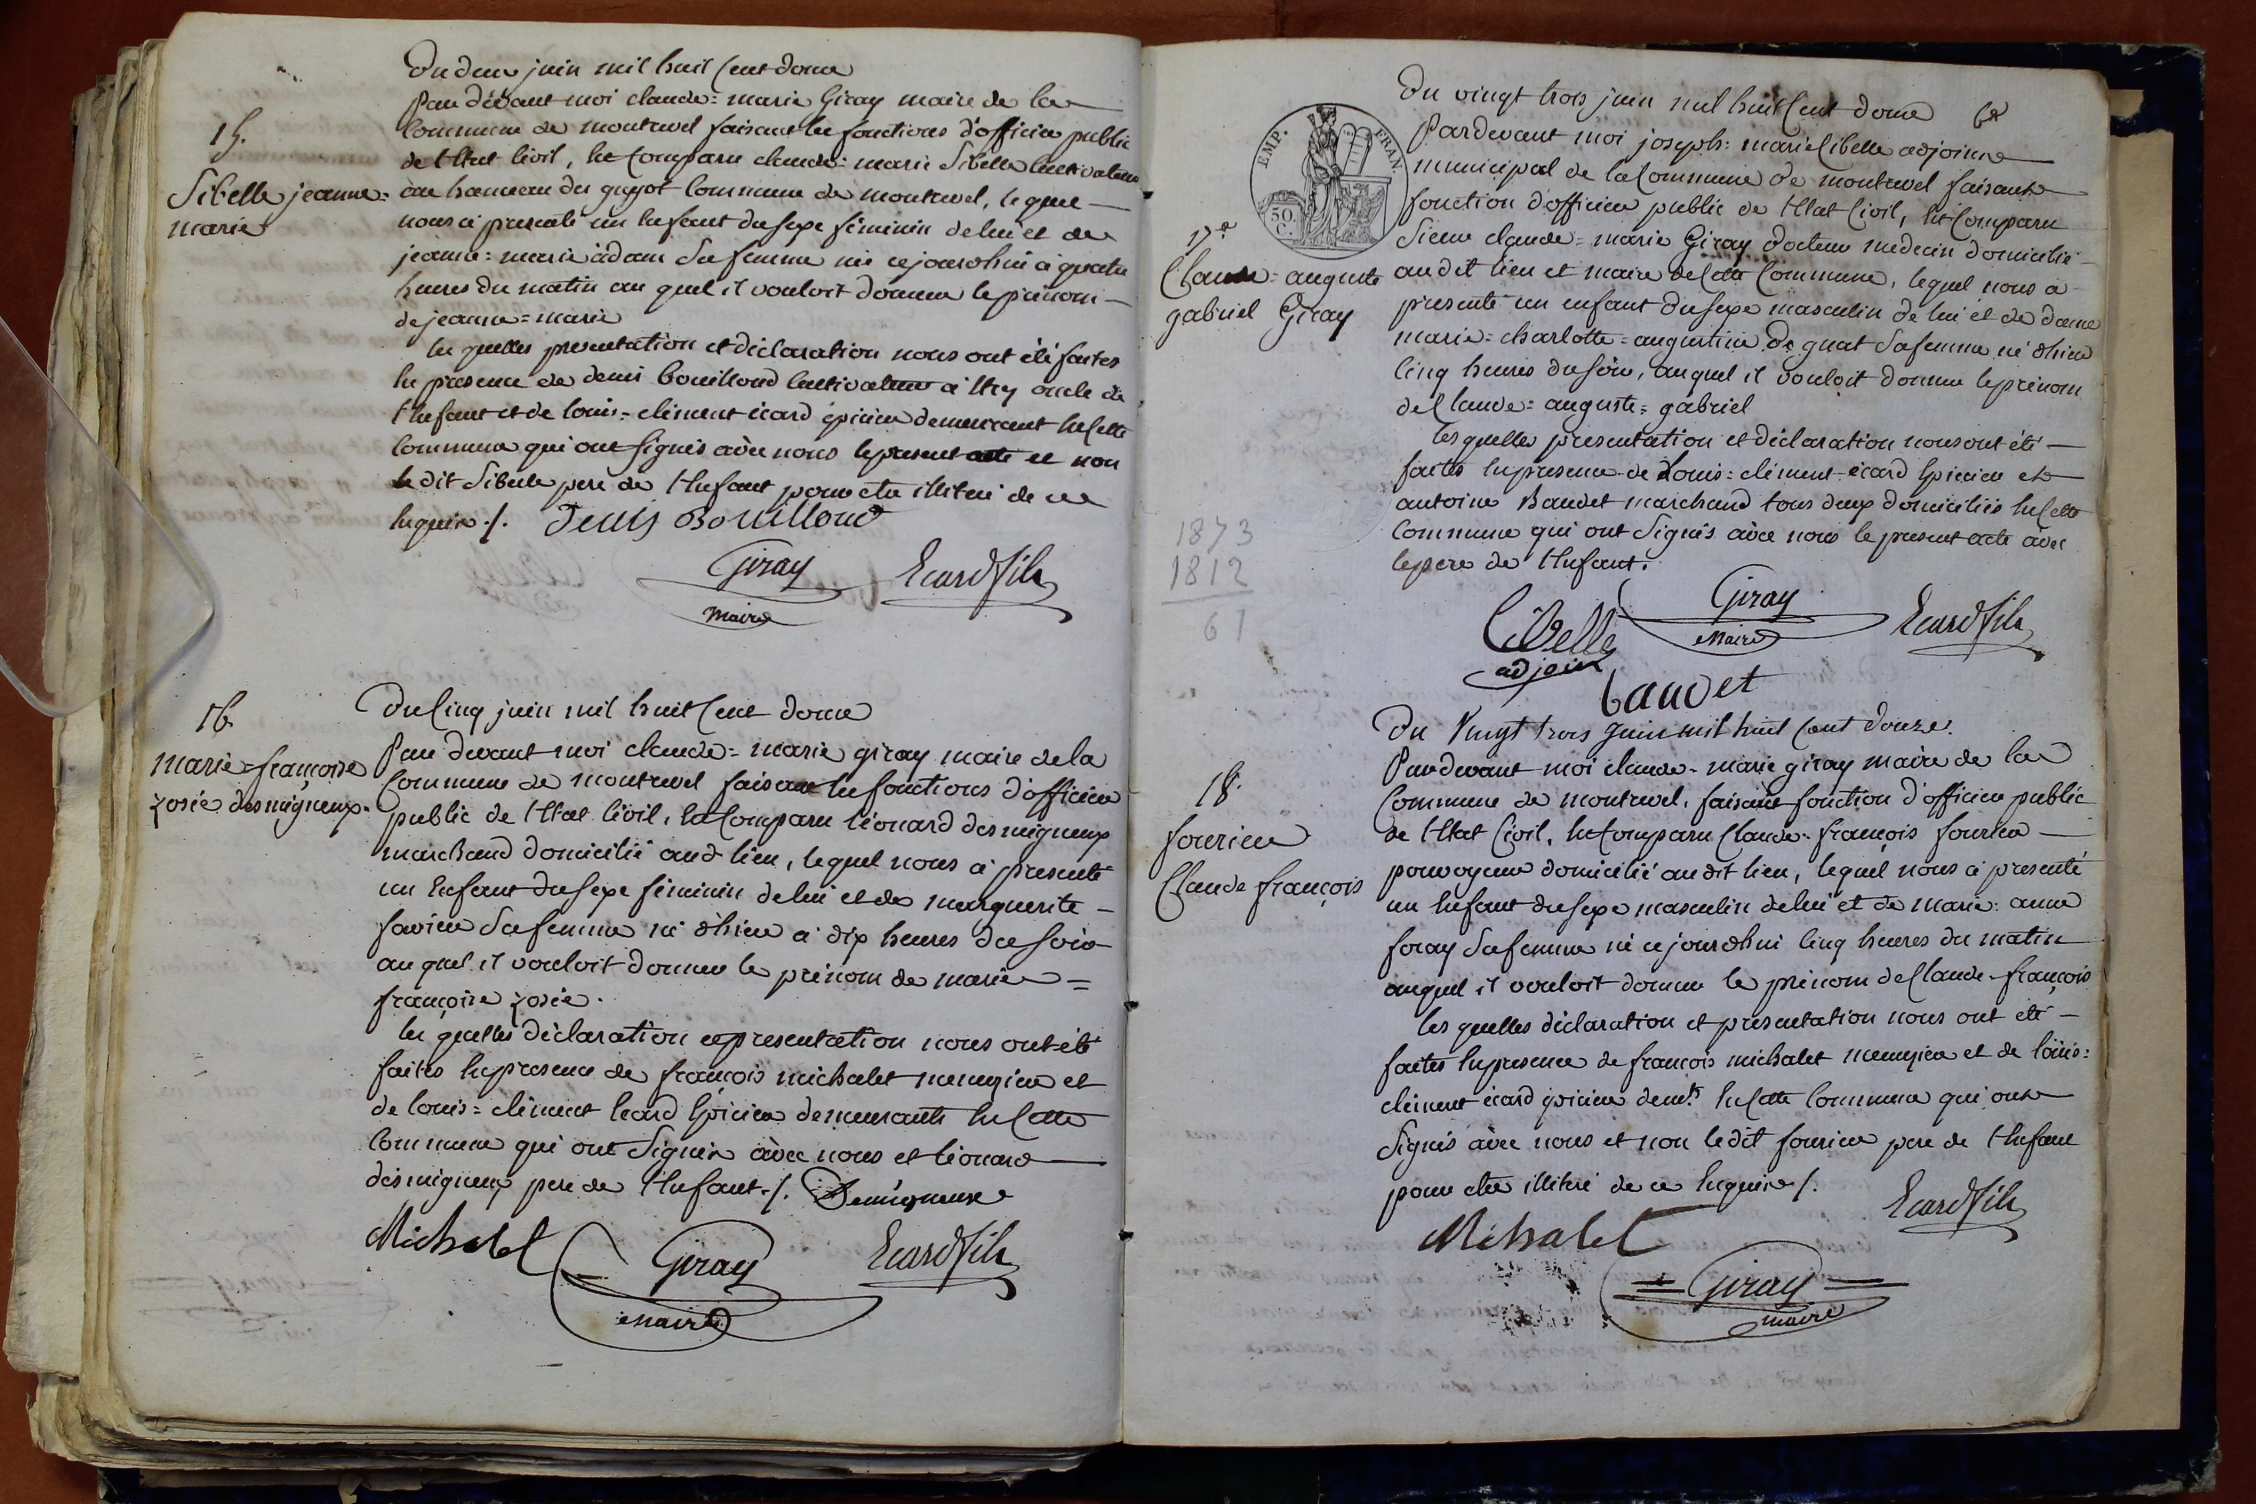 Du deux juin mil huit Cent douze
Par dévant moi claude= marie Giray maire de la
Commune de montrevel faisant les fonctions d'officier public
de l'Etat Civil, est Comparu claude= marie Sibelle Cultivateur
au hameau des guyot Commune de montrevel, lequel
nous a presenté un Enfant du sexe féminin de lui et de
jeanne= marie àdam Sa femme né cejourdhui à quatre
heures du matin au quel il vouloit donner le prénom
de jeanne= marie
les quelles presentation et déclaration nous ont été faites
En presence de denis Bouilloud Cultivateur à Etrey oncle de
l'Enfant et de louis= clément écard épicier demeurant En Cette
Commune qui ont Signés avec nous le present acte et non
le dit Sibelle pere de l'Enfant pour etre illitéré de ce
Enquis ./. Denis Bouilloud
Giray
maire
Ecard fils
15.
Sibelle jeanne=
marie
Du Cinq juin mil huit Cent douze
Par devant moi claude= marie giray maire de la
Commune de montrevel faisant les fonctions d'officier
public de l'Etat Civil, est Comparu léonard desmigneux
marchand domicilié aud. lieu, lequel nous a presenté
un Enfant du sexe féminin de lui et de marguerite
favier Sa femme né d'hier à dix heures du soir
au quel il vouloit donner le prénom de marie=
françoise zosée.
les quelles déclaration et presentation nous ont été
faites En presence de françois michalet menuzier et
de louis= clément Ecard Epicier demeurants En Cette
Commune qui ont Signés avec nous et léonard
desmigneux pere de l'Enfant ./. Demigneuxe
Michalet
Giray
maire
Ecard fils
16.
marie=françoise
zosée desmigneux.
EMP. FRAN.
50.
C.
Du vingt trois juin mil huit Cent douze
Pardevant moi joseph= marie Cibelle adjoint
municipal de la Commune de montrevel faisant
fonction d'officier public de l'Etat Civil, Est Comparu
Sieur claude= marie Giray Docteur medecin domicilié
au dit lieu et maire de Cette Commune, lequel nous a
presenté un enfant du sexe masculin de lui et de dame
marie= charlotte= augustine De guat Sa femme né d'hier
Cinq heures du soir, au quel il vouloit donner le prénom
de Claude= auguste= gabriel
les quelles presentation et déclaration nous ont été
faites En presence de Louis= clément écard Epicier et
antoine Baudet marchand tous deux domiciliés En Cette
Commune qui ont Signés avec nous le present acte avec
le pere de l'Enfant.
Cibelle
adjoint
Giray
Maire
Ecard fils
baudet
17.e
Claude= auguste
gabriel Giray
1873
1812
61
Du Vingt trois Juin mil huit Cent Douze.
Pardevant moi claude- marie giray maire de la
Commune de montrevel, faisant fonction d'officier public
de l'Etat Civil, Est Comparu Claude- françois fourier
pourvoyeur domicilié au dit lieu, lequel nous a presenté
un Enfant du sexe masculin de lui et de marie= anne
foray Sa femme né ce jourdhui Cinq heures du matin
auquel il vouloit donner le prénom de Claude- françois
les quelles déclaration et presentation nous ont été
faites En presence de françois michalet menuzier et de louis=
clément écard épicier demts. En Cette Commune qui ont
Signés avec nous et non le dit fourier pere de l'Enfant
pour etre illitéré de ce Enquis ./.
Ecard fils
Michalet
Giray
maire
18.
fourier
Claude françois